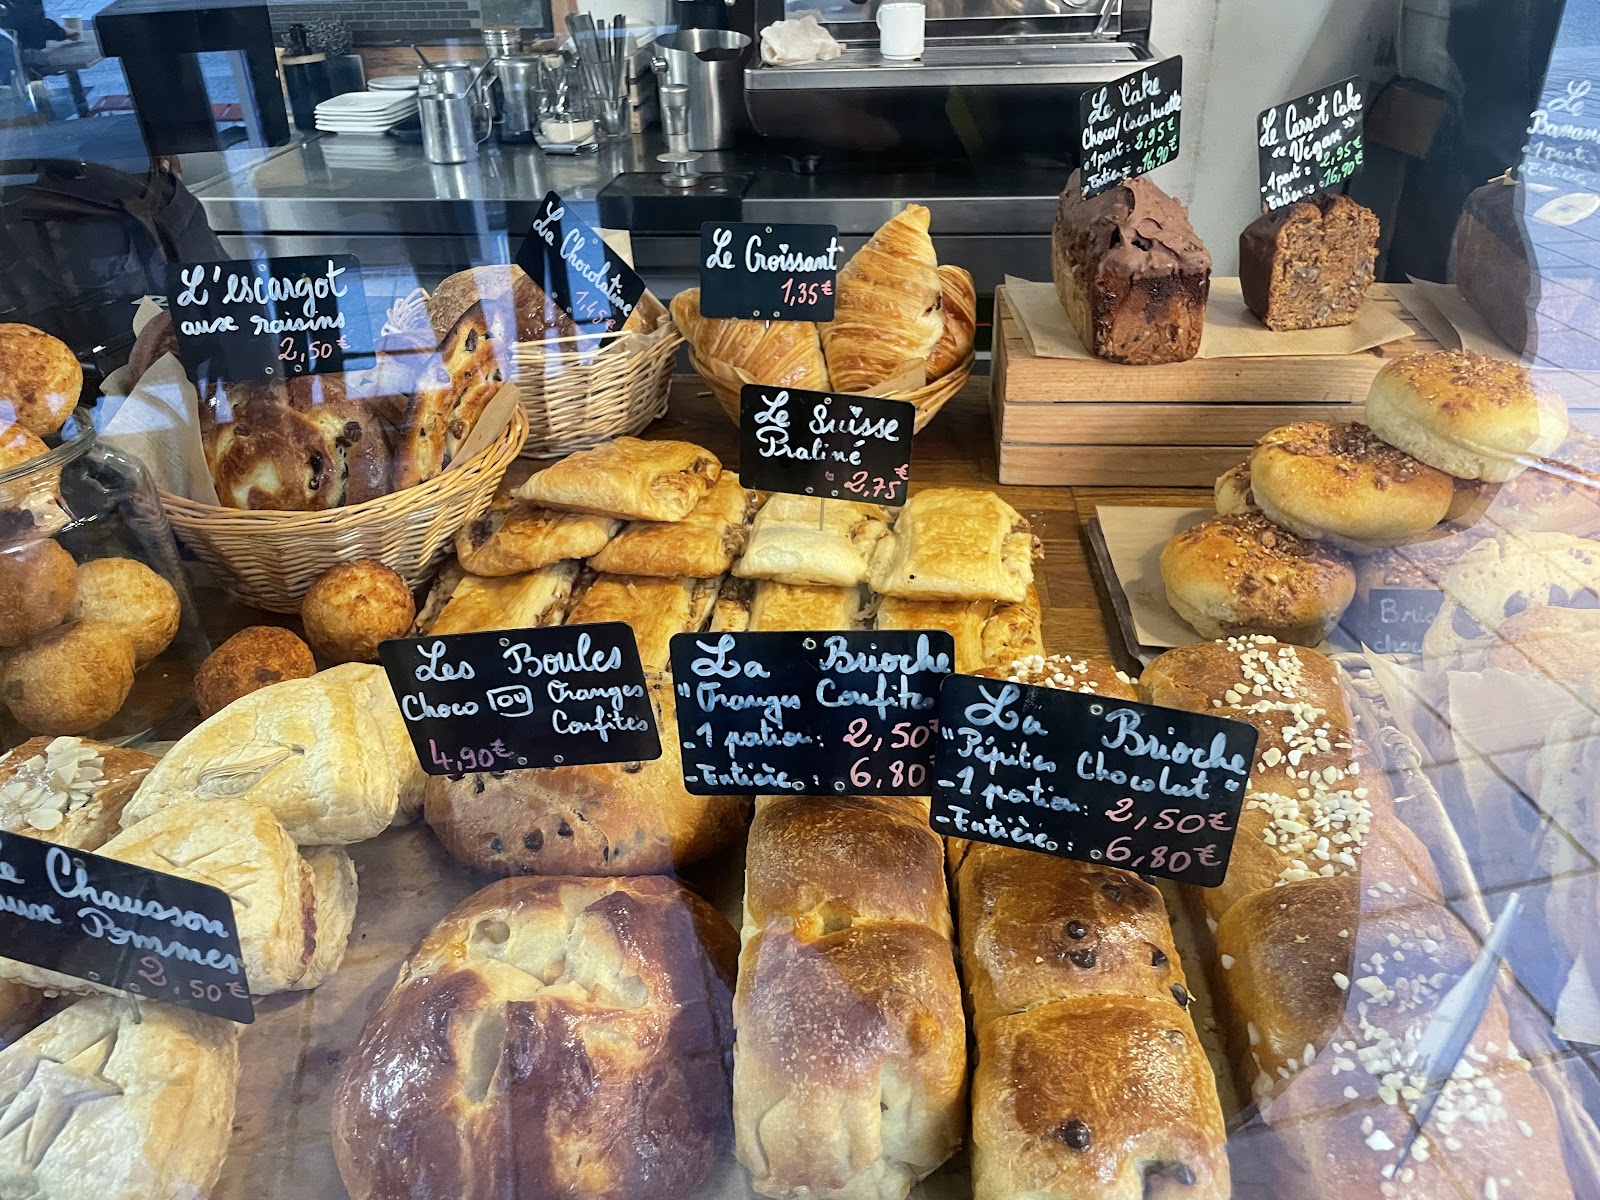 Le Cake
Choco/Cacahuète
-1 part: 2,95€
-Entier: 16,90€
Le Carrot Cake
"Vegan"
-1 part: 2,95€
Entier: 16,90€
Le
Banan
-1 part:
-Entier:
La Chocolatine
1,45€
Le Croissant
1,35€
L'escargot
aux raisins
2,50€
Le Suisse
Praliné
2,75€
Les Boules
Choco OU Oranges
Confites
4,90€
La Brioche
"Oranges Confites
-1 pation: 2,50€
-Entière: 6,80
La Brioche
"Pépites Chocolat"
-1 pation: 2,50€
-Entière: 6,80€
Le Chausson
aux Pommes
2,50€
Brio
choc